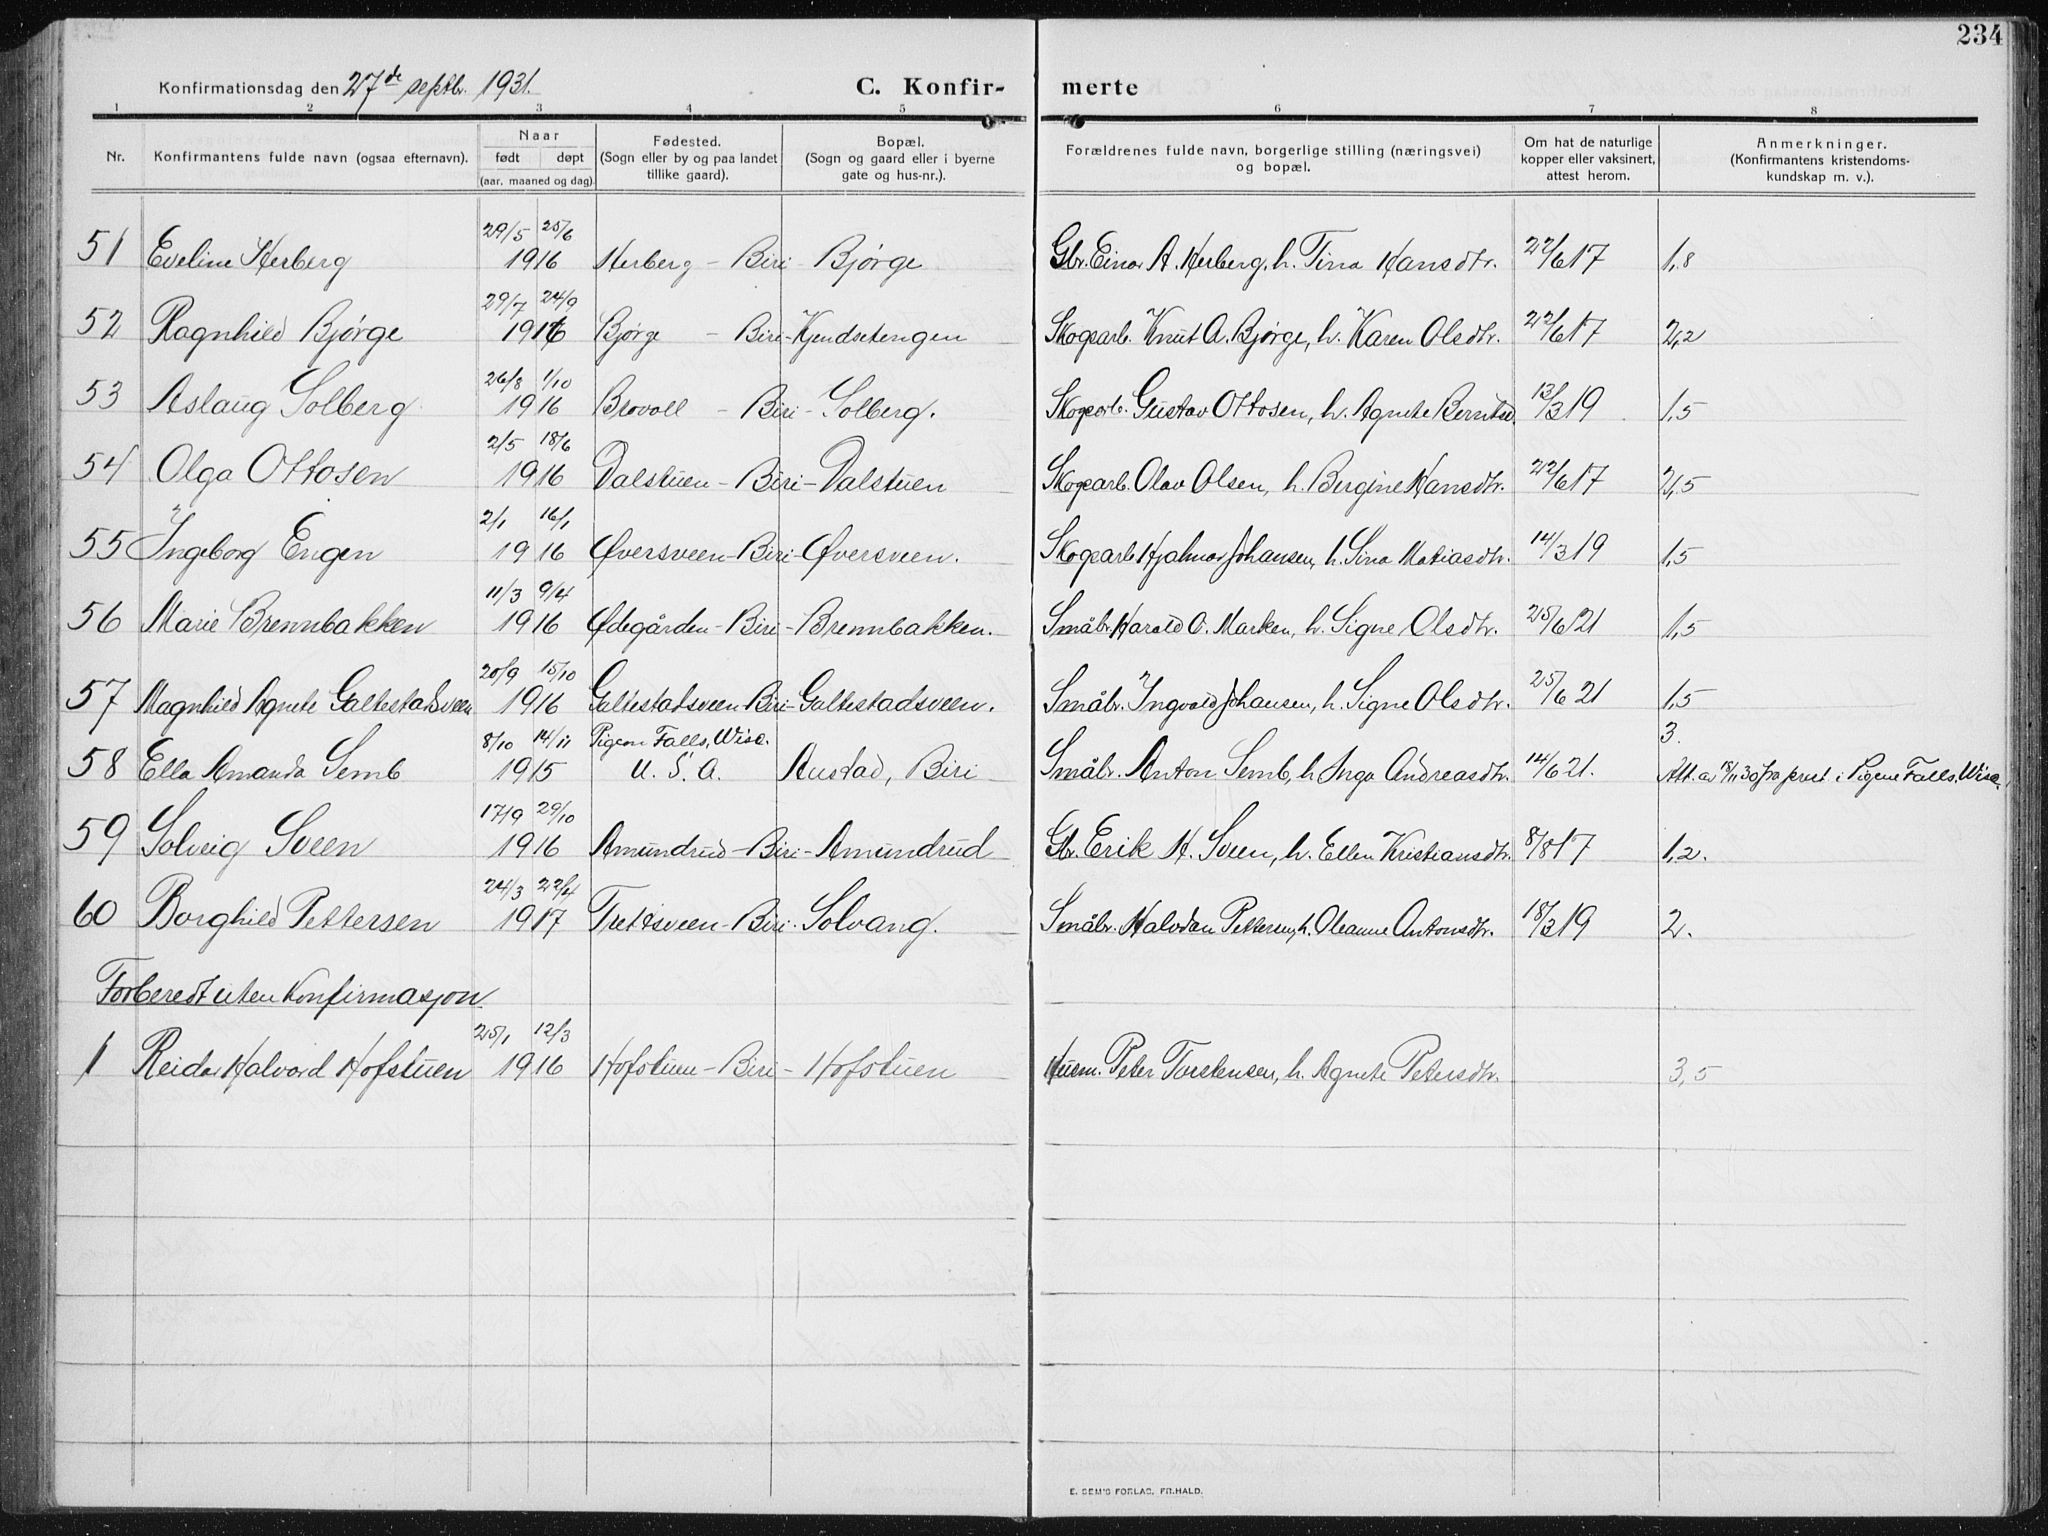 234
Konfirmationsdag den 27de septbr. 1931.
C. Konfir- merte
1 2 3 4 5 6 7 8
Nr. Konfirmantens fulde navn (ogsaa efternavn). Naar født døpt (aar, maaned og dag). Fødested. (Sogn eller by og paa landet tillike gaard). Bopæl. (Sogn og gaard eller i byerne gate og hus-nr.). Forældrenes fulde navn, borgerlige stilling (næringsvei) og bopæl. Om hat de naturlige kopper eller vaksinert, attest herom. Anmerkninger. (Konfirmantens kristendoms-kundskap m. v.).
29/5 25/6
51 Eveline Herberg 1916 Herberg - Biri - Bjørge Gbr. Einar A. Herberg, h. Tina Hansdtr. 22/6 17 1,8
29/7 24/9
52 Ragnhild Bjørge 1916 Bjørge - Biri - Kjendsetengen Skogsarb. Knut A. Bjørge, h. Karen Olsdtr. 22/6 17 2,2
26/8 1/10
53 Aslaug Solberg 1916 Brovoll - Biri - Solberg. Skogsarb. Gustav Ottosen, h. Agnete Berntsd. 13/3 19 1,5
2/5 18/6
54 Olga Ottosen 1916 Dalstuen - Biri - Dalstuen Skogsarb. Olav Olsen, h. Bergine Hansdtr. 22/6 17 2,5
2/1 16/1
55 Ingeborg Engen 1916 Øversveen - Biri - Øversveen. Skogsarb. Hjalmar Johansen, h. Sina Matiasdtr. 14/3 19 1,5
11/3 9/4
56 Marie Brennbakken 1916 Ødegården - Biri - Brennbakken. Småbr. Harald O. Marken, h. Signe Olsdtr. 25/6 21 1,5
20/9 15/10
57 Magnhild Agnete Galtestadsveen 1916 Galtestadsveen Biri - Galtestadsveen. Småbr. Ingvald Johansen, h. Signe Olsdtr. 25/6 21 1,5
8/10 14/11 Pigeon Falls, Wisc. 3.
58 Ella Amanda Semb 1915 U. S. A. Austad, Biri Småbr. Anton Semb, h. Inga Andreasdtr. 14/6 21. Att. av 18/11 30 fra prest i Pigene Falls, Wisc.
17/9 29/10
59 Solveig Sveen 1916 Amundrud - Biri - Amundrud Gbr. Erik H. Sveen, h. Ellen Kristiansdtr. 8/8 17 1,2.
24/3 22/4
60 Borghild Pettersen 1917 Trettsveen - Biri - Solvang. Småbr. Halvdan Pettersen, h. Oleanne Antonsdtr. 18/3 19 2.
Forberedt uten konfirmasjon
25/1 12/3
1 Reidar Halvard Hofstuen 1916 Hofstuen - Biri - Hofstuen Husm. Peter Torstensen, h. Agnete Petersdtr. 3,5
E. SEM'S FORLAG, FR.HALD.